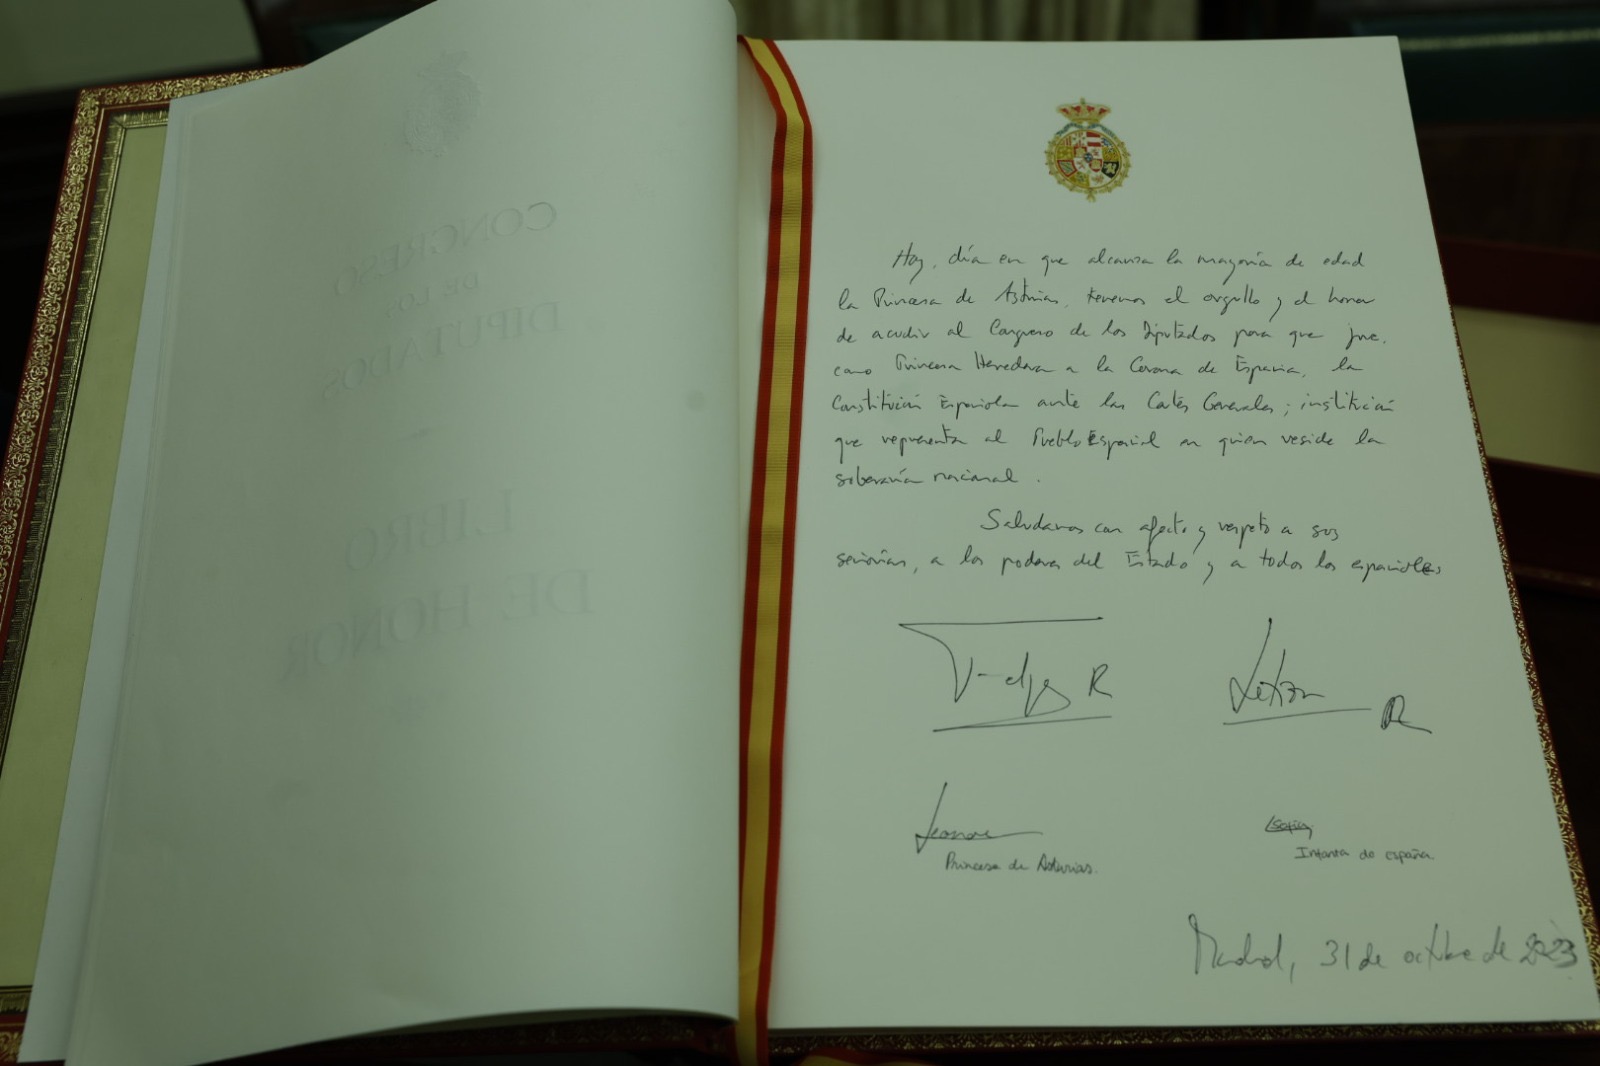 CONGRESO
DE LOS
DIPUTADOS
LIBRO
DE HONOR
Hoy, día en que alcanza la mayoría de edad
la Princesa de Asturias, tenemos el orgullo y el honor
de acudir al Congreso de los Diputados para que jure,
como Princesa Heredera a la Corona de España, la
Constitución Española ante las Cortes Generales; institución
que representa al Pueblo Español en quien reside la
soberanía nacional.
Saludamos con afecto y respeto a sus
señorías, a los poderes del Estado y a todos los españoles
Felipe R
Letizia R
Leonor
Princesa de Asturias.
Sofía
Infanta de españa
Madrid, 31 de octubre de 2023